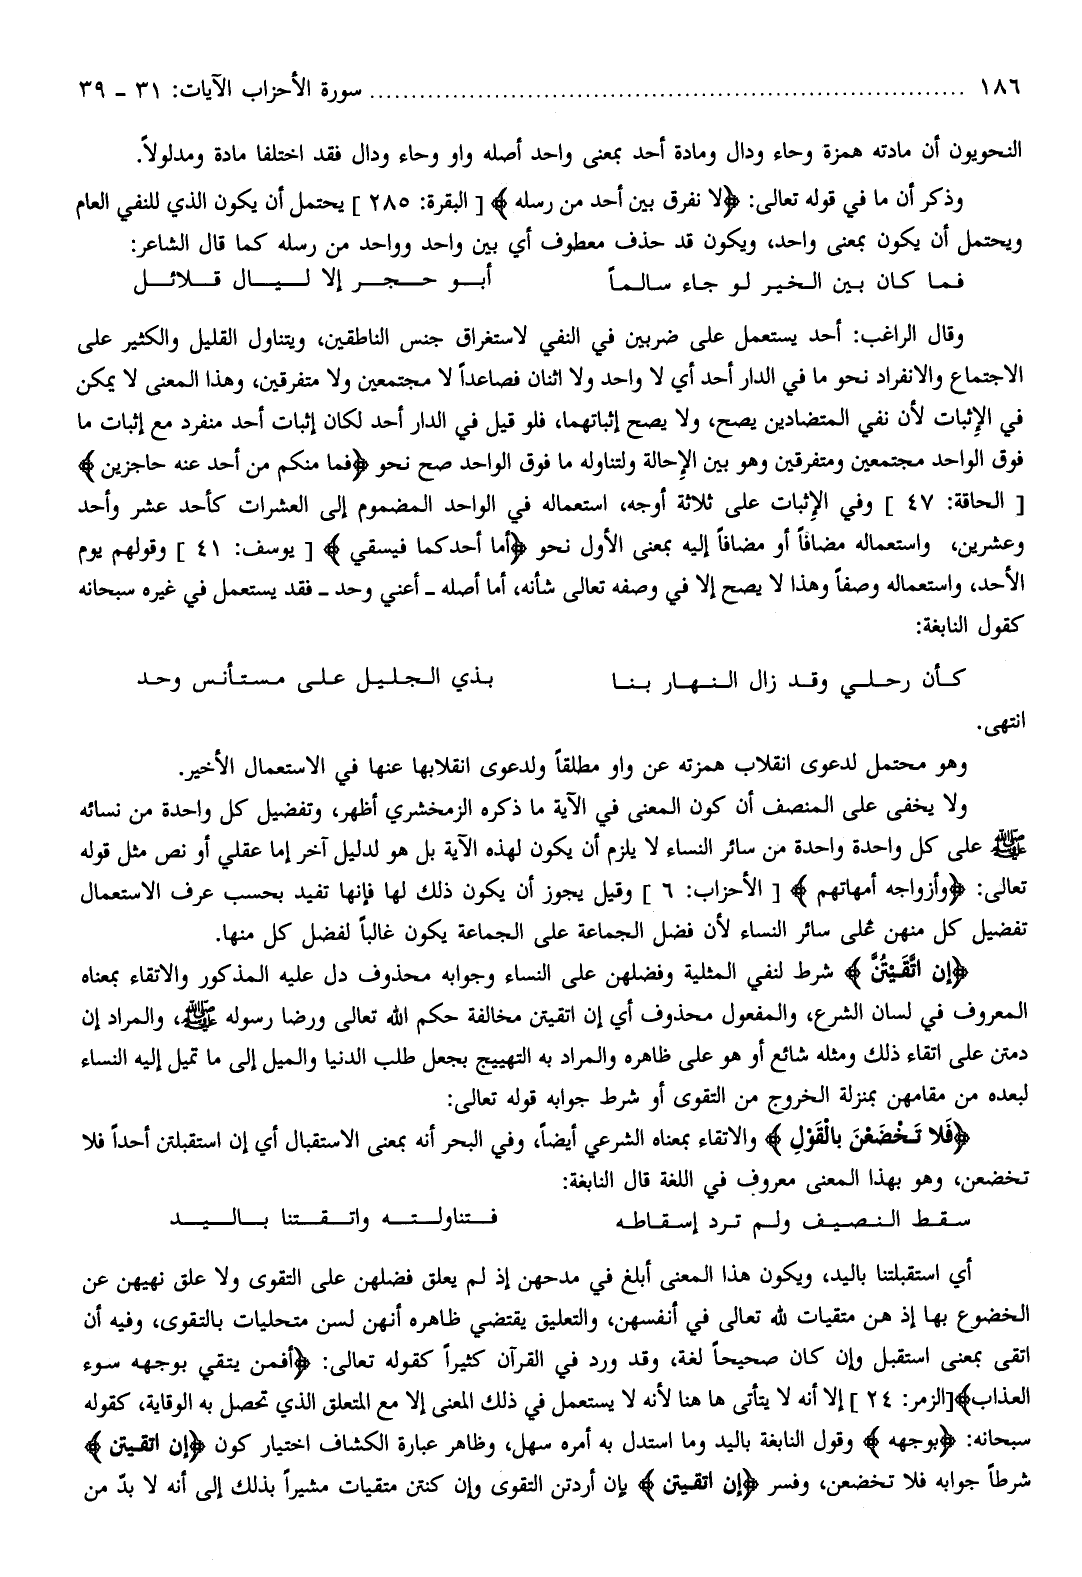 ١٨٦ ........................................ سورة الأحزاب الآيات: ٣١ ـ ٣٩
النحويون أن مادته همزة وحاء ودال ومادة أحد بمعنى واحد أصله واو وحاء ودال فقد اختلفا مادة ومدلولاً.
وذكر أن ما في قوله تعالى: ﴿لا نفرق بين أحد من رسله﴾ [ البقرة: ٢٨٥ ] يحتمل أن يكون الذي للنفي العام
ويحتمل أن يكون بمعنى واحد، ويكون قد حذف معطوف أي بين واحد وواحد من رسله كما قال الشاعر:
فما كان بين الخير لو جاء سالماً أبو حجر إلا ليال قلائل
وقال الراغب: أحد يستعمل على ضربين في النفي لاستغراق جنس الناطقين، ويتناول القليل والكثير على
الاجتماع والانفراد نحو ما في الدار أحد أي لا واحد ولا اثنان فصاعداً لا مجتمعين ولا متفرقين، وهذا المعنى لا يمكن
في الإثبات لأن نفي المتضادين يصح، ولا يصح إثباتهما، فلو قيل في الدار أحد لكان إثبات أحد منفرد مع إثبات ما
فوق الواحد مجتمعين ومتفرقين وهو بين الإحالة ولتناوله ما فوق الواحد صح نحو ﴿فما منكم من أحد عنه حاجزين﴾
[ الحاقة: ٤٧ ] وفي الإثبات على ثلاثة أوجه، استعماله في الواحد المضموم إلى العشرات كأحد عشر وأحد
وعشرين، واستعماله مضافاً أو مضافاً إليه بمعنى الأول نحو ﴿أما أحدكما فيسقي﴾ [ يوسف: ٤١ ] وقولهم يوم
الأحد، واستعماله وصفاً وهذا لا يصح إلا في وصفه تعالى شأنه، أما أصله ـ أعني وحد ـ فقد يستعمل في غيره سبحانه
كقول النابغة:
كأن رحلي وقد زال النهار بنا بذي الجليل على مستأنس وحد
انتهى.
وهو محتمل لدعوى انقلاب همزته عن واو مطلقاً ولدعوى انقلابها عنها في الاستعمال الأخير.
ولا يخفى على المنصف أن كون المعنى في الآية ما ذكره الزمخشري أظهر، وتفضيل كل واحدة من نسائه
ﷺ على كل واحدة واحدة من سائر النساء لا يلزم أن يكون لهذه الآية بل هو لدليل آخر إما عقلي أو نص مثل قوله
تعالى: ﴿وأزواجه أمهاتهم﴾ [ الأحزاب: ٦ ] وقيل يجوز أن يكون ذلك لها فإنها تفيد بحسب عرف الاستعمال
تفضيل كل منهن على سائر النساء لأن فضل الجماعة على الجماعة يكون غالباً لفضل كل منها.
﴿إن اتَّقَيْتُنَّ﴾ شرط لنفي المثلية وفضلهن على النساء وجوابه محذوف دل عليه المذكور والاتقاء بمعناه
المعروف في لسان الشرع، والمفعول محذوف أي إن اتقيتن مخالفة حكم الله تعالى ورضا رسوله ﷺ، والمراد إن
دمتن على اتقاء ذلك ومثله شائع أو هو على ظاهره والمراد به التهييج بجعل طلب الدنيا والميل إلى ما تميل إليه النساء
لبعده من مقامهن بمنزلة الخروج من التقوى أو شرط جوابه قوله تعالى:
﴿فَلا تَخْضَعْنَ بالْقَوْلِ﴾ والاتقاء بمعناه الشرعي أيضاً، وفي البحر أنه بمعنى الاستقبال أي إن استقبلتن أحداً فلا
تخضعن، وهو بهذا المعنى معروف في اللغة قال النابغة:
سقط النصيف ولم ترد إسقاطه فتناولته واتقتنا باليد
أي استقبلتنا باليد، ويكون هذا المعنى أبلغ في مدحهن إذ لم يعلق فضلهن على التقوى ولا علق نهيهن عن
الخضوع بها إذ هن متقيات لله تعالى في أنفسهن، والتعليق يقتضي ظاهره أنهن لسن متحليات بالتقوى، وفيه أن
اتقى بمعنى استقبل وإن كان صحيحاً لغة، وقد ورد في القرآن كثيراً كقوله تعالى: ﴿أفمن يتقي بوجهه سوء
العذاب﴾[الزمر: ٢٤ ] إلا أنه لا يتأتى ها هنا لأنه لا يستعمل في ذلك المعنى إلا مع المتعلق الذي تحصل به الوقاية، كقوله
سبحانه: ﴿بوجهه﴾ وقول النابغة باليد وما استدل به أمره سهل، وظاهر عبارة الكشاف اختيار كون ﴿إن اتقيتن﴾
شرطاً جوابه فلا تخضعن، وفسر ﴿إن اتقيتن﴾ بإن أردتن التقوى وإن كنتن متقيات مشيراً بذلك إلى أنه لا بدّ من